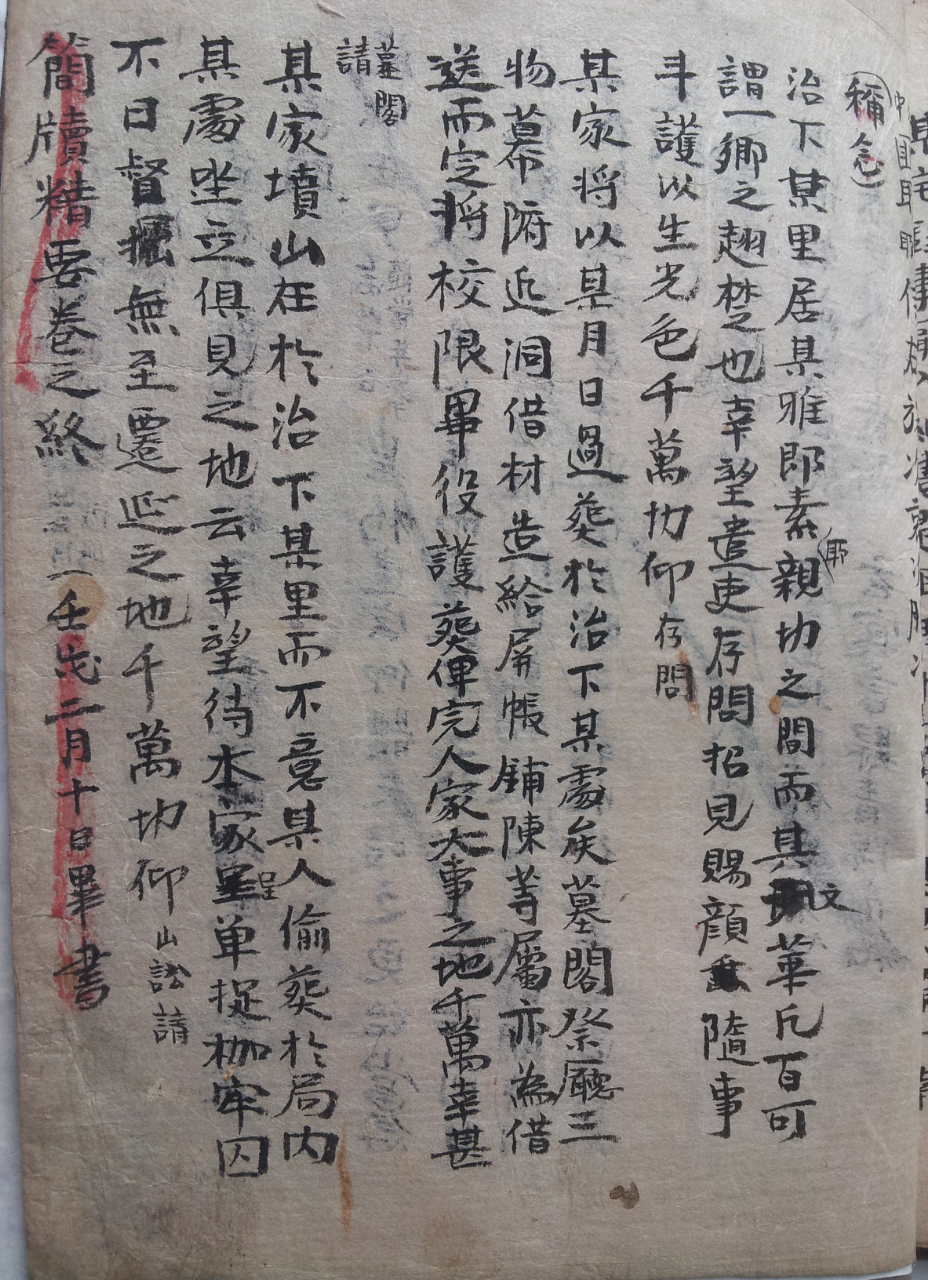 稱念
治下某里居某雅郎素親切之間而其文華凡百可
謂一鄉之翹楚也幸望遣吏存問招見賜顔隨事
斗護以生光色千萬切仰 存問
某家將以某月日過葬於治下某處矣墓閣祭廳三
物幕府近洞借材造給屛帳鋪陳等屬亦為借
送而定將校限畢役護葬俾完人家大事之地千萬幸甚
墓閣請
某家墳山在於治下某里而不意某人偷葬於局內
某處坐立俱見之地云幸望待本家呈單捉枷牢囚
不日督掘無至遷延之地千萬切仰 山訟請
簡牘精要卷之終
壬戌二月十日畢書